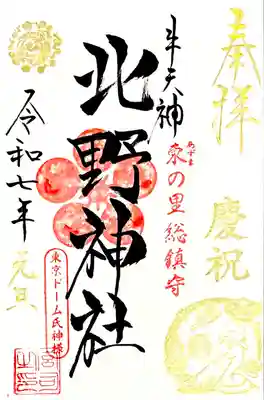 奉拝
慶祝
牛天神
あずま
東の里総鎮守
北野神社
東京ドーム氏神様
令和七年
元旦